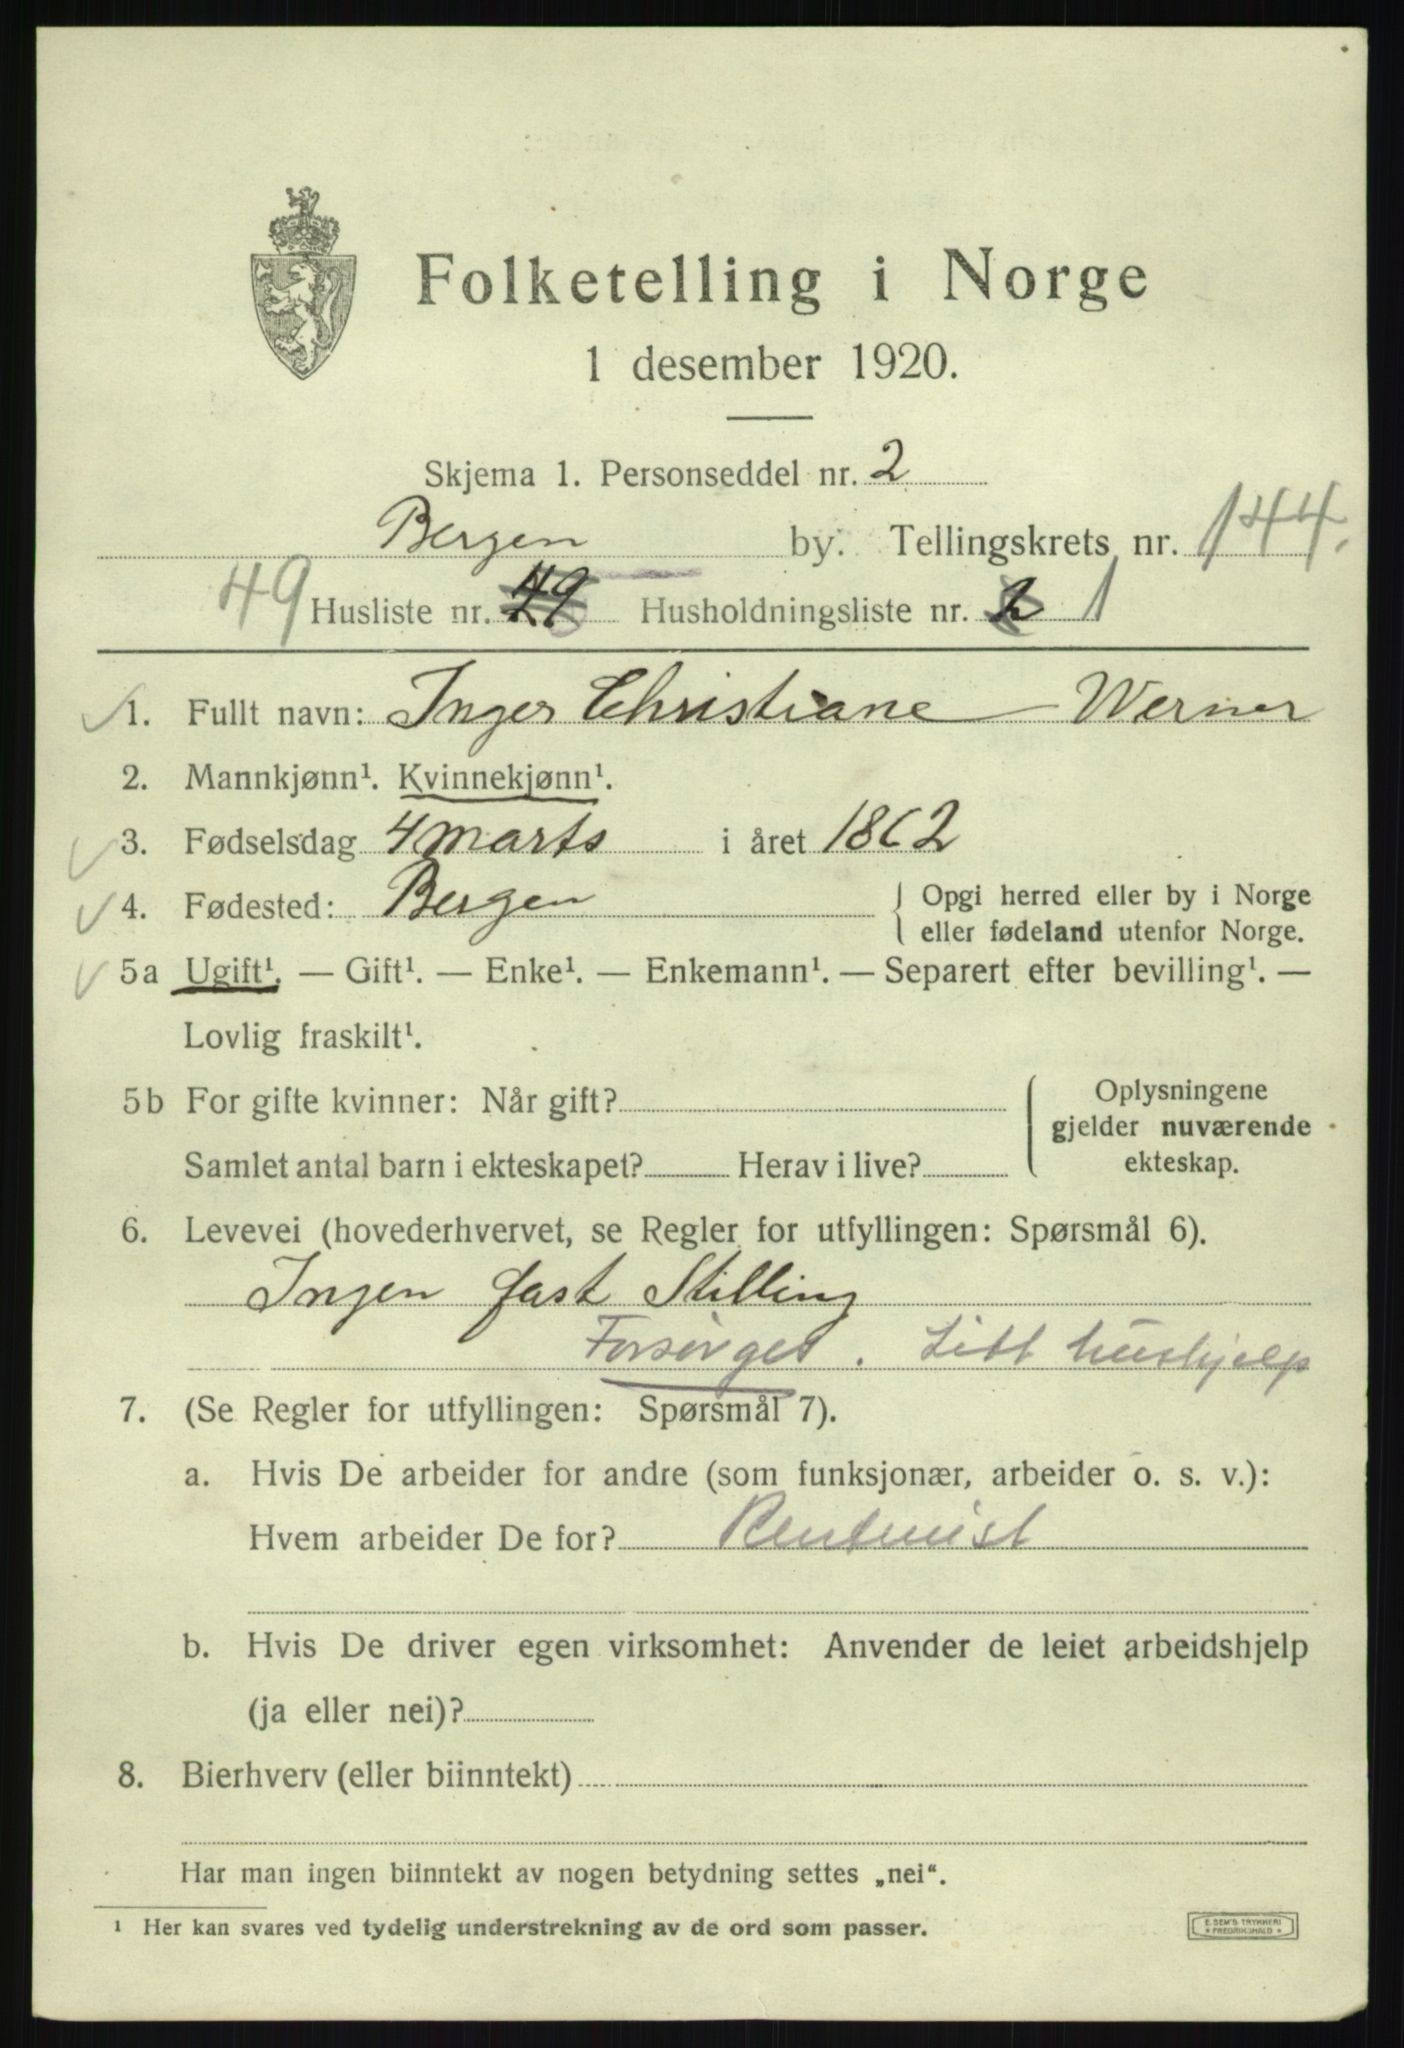 Folketelling i Norge
1 desember 1920.
Skjema 1. Personseddel nr. 2
Bergen by. Tellingskrets nr. 144.
49 Husliste nr. 49 Husholdningsliste nr. 2 1
1. Fullt navn: Inger Christiane Werner
2. Mannkjønn¹. Kvinnekjønn¹.
3. Fødselsdag 4 marts i året 1862
4. Fødested: Bergen { Opgi herred eller by i Norge
eller fødeland utenfor Norge.
5a Ugift¹. — Gift¹. — Enke¹. — Enkemann¹. — Separert efter bevilling¹. —
Lovlig fraskilt¹.
5b For gifte kvinner: Når gift?
Samlet antal barn i ekteskapet? Herav i live?
Oplysningene
gjelder nuværende
ekteskap.
6. Levevei (hovederhvervet, se Regler for utfyllingen: Spørsmål 6).
Ingen fast Stilling
Forsørges. Litt hushjelp
7. (Se Regler for utfyllingen: Spørsmål 7).
a. Hvis De arbeider for andre (som funksjonær, arbeider o. s. v.):
Hvem arbeider De for? Rentenist
b. Hvis De driver egen virksomhet: Anvender de leiet arbeidshjelp
(ja eller nei)?
8. Bierhverv (eller biinntekt)
Har man ingen biinntekt av nogen betydning settes „nei“.
¹ Her kan svares ved tydelig understrekning av de ord som passer.
E. SEM'S TRYKKERI
FREDRIKSHALD